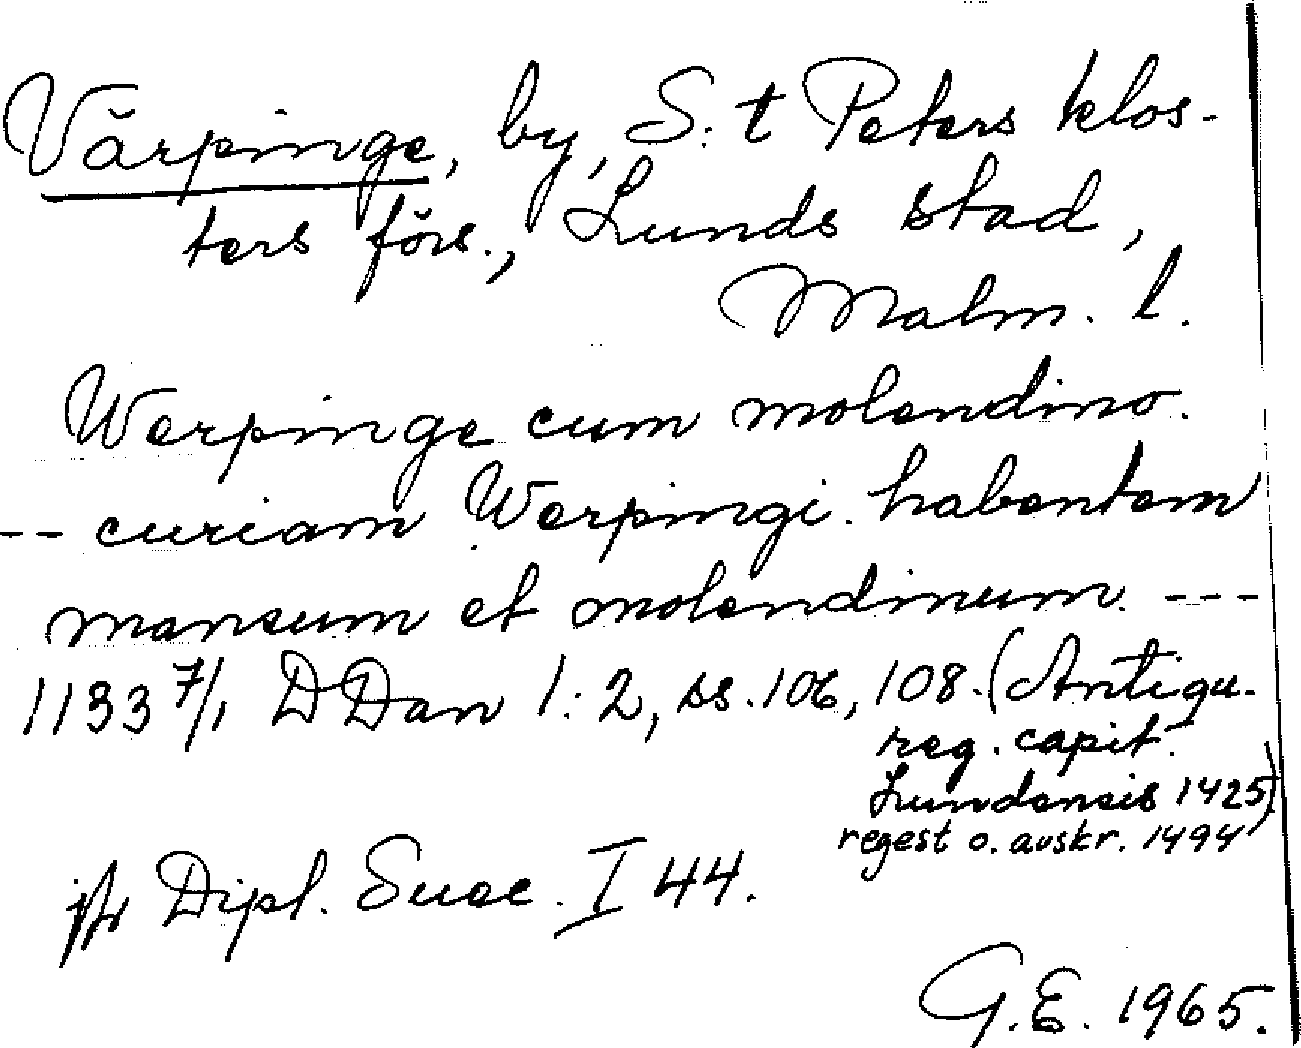 Värpinge, by, S:t Peters klos-
ters förs., Lunds stad,
Malm. l.
Werpinge cum molendino.
-- curiam Werpingi habentem
mansum et molendinum. ---
1133 7/1 DDan 1:2, ss. 106, 108. (Antiqu.
reg. capit.
Lundensis 1425)
regest o. avskr. 1494)
jfr Dipl. Suec. I 44.
G.E. 1965.